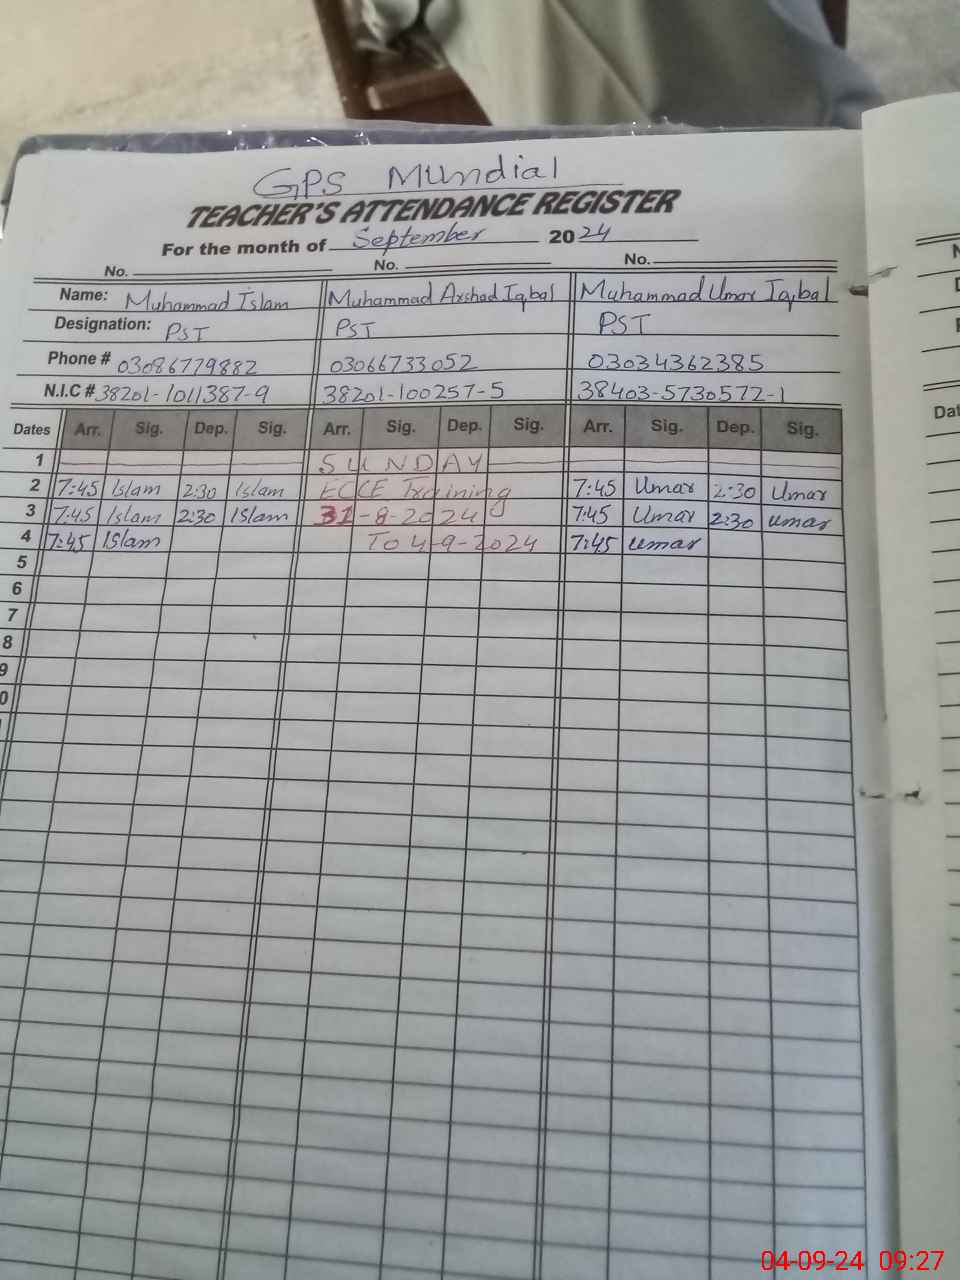 GPS Mundial
TEACHER'S ATTENDANCE REGISTER
For the month of September 2024
No. No. No.
Name: Muhammad Islam Muhammad Arshad Iqbal Muhammad Umar Iqbal
Designation: PST PST PST
Phone # 03086779882 03066733052 03034362385
N.I.C # 38201-1011387-9 38201-100257-5 38403-5730572-1
Dates Arr. Sig. Dep. Sig. Arr. Sig. Dep. Sig. Arr. Sig. Dep. Sig.
1 SUNDAY
2 7:45 Islam 2:30 Islam ECCE Training 7:45 Umar 2:30 Umar
3 7:45 Islam 2:30 Islam 31-8-2024 7:45 Umar 2:30 umar
4 7:45 Islam To 4-9-2024 7:45 umar
5
6
7
8
9
0
Dat
04-09-24 09:27